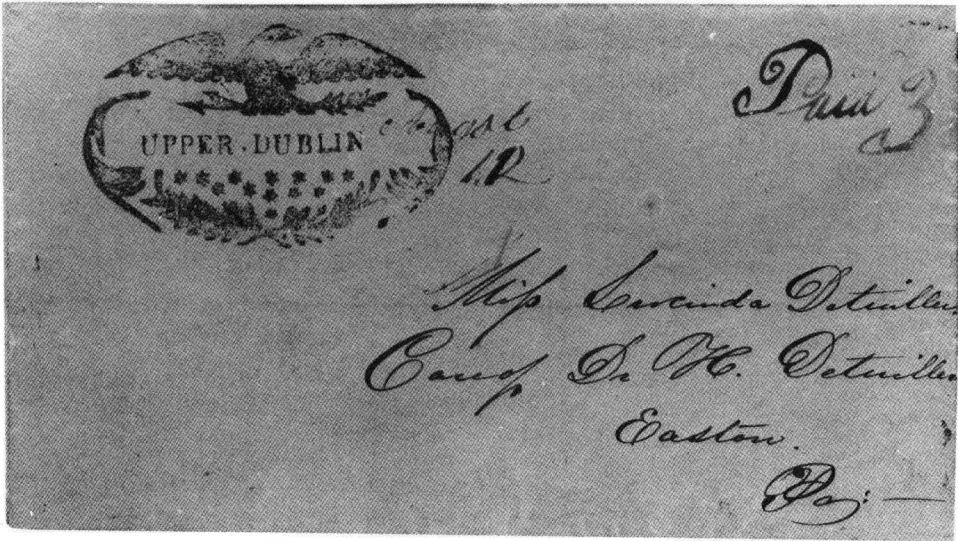 UPPER.DUBLIN
Paid 3
12
Miss Lucinda Detwiller
Care of Dr H. Detwiller
Easton.
Pa: